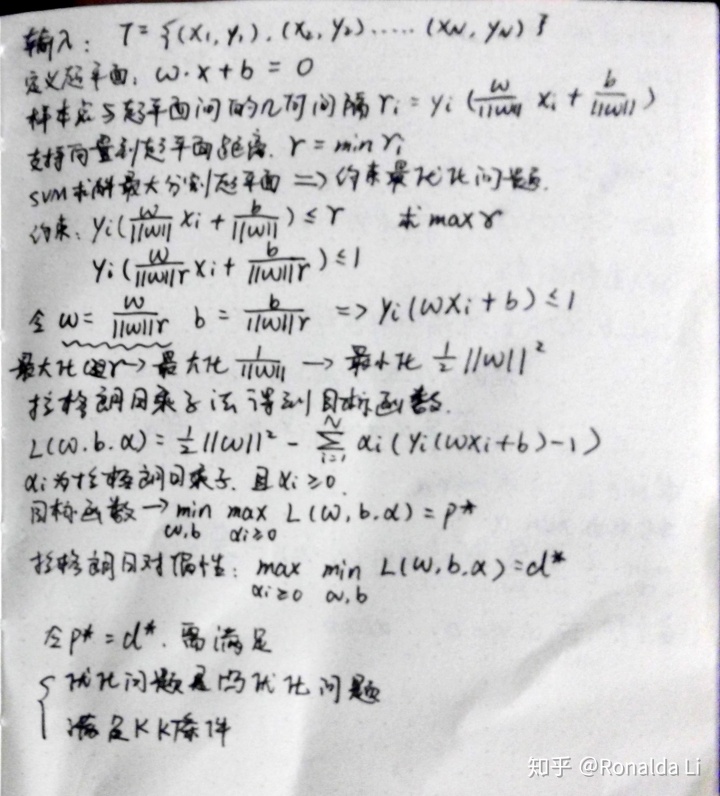 输入: T = {(x₁, y₁), (x₂, y₂)..... (x_N, y_N)}
定义超平面: ω·x + b = 0
样本点与超平面间的几何间隔 r_i = y_i (ω/||ω|| x_i + b/||ω||)
支持向量到超平面距离. r = min r_i
SVM求解最大分割超平面 => 约束最优化问题.
约束: y_i(ω/||ω|| x_i + b/||ω||) ≤ r 求 max r
y_i(ω/||ω||r x_i + b/||ω||r) ≤ 1
令 ω = ω/||ω||r b = b/||ω||r => y_i(ωx_i + b) ≤ 1
最大化 r → 最大化 1/||ω|| → 最小化 ½||ω||²
拉格朗日乘子法得到目标函数.
L(ω.b.α) = ½||ω||² - Σ_{i=1}^{N} α_i(y_i(ωx_i+b)-1)
α_i为拉格朗日乘子. 且 α_i ≥ 0.
目标函数 → min_{ω,b} max_{α_i≥0} L(ω,b.α) = p*
拉格朗日对偶性: max_{α_i≥0} min_{ω,b} L(ω,b.α) = d*
令 p* = d*. 需满足
{ 优化问题是凸优化问题
满足KK条件
知乎 @Ronalda Li